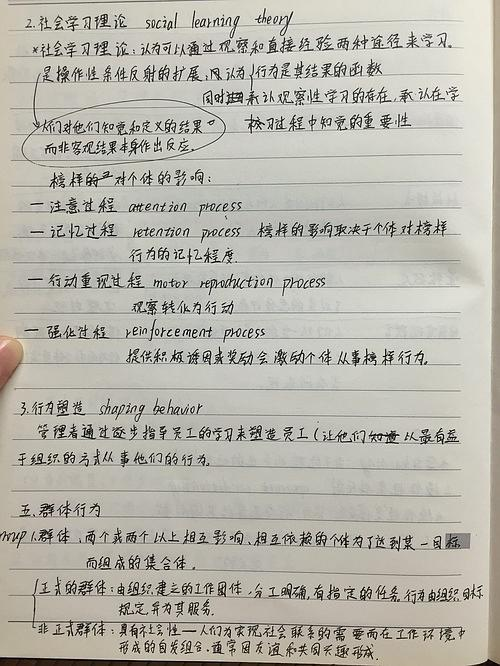 2.社会学习理论 social learning theory
*社会学习理论:认为可以通过观察和直接经验两种途径来学习。
是操作性条件反射的扩展,因认为行为是其结果的函数
同时承认观察性学习的存在,承认在学
习过程中知觉的重要性
人们对他们知觉和定义的结果
而非客观结果本身作出反应。
榜样的 对个体的影响:
一 注意过程 attention process
一 记忆过程 retention process 榜样的影响取决于个体对榜样
行为的记忆程度
一 行动重现过程 motor reproduction process
观察转化为行动
一 强化过程 reinforcement process
提供积极诱因或奖励会激励个体从事榜样行为。
3.行为塑造 shaping behavior
管理者通过逐步指导员工的学习来塑造员工(让他们 以最有益
于组织的方式从事他们的行为。
五.群体行为
group 1.群体,两个或两个以上相互影响、相互依赖的个体为了达到某一目标
而组成的集合体。
正式的群体:由组织建立的工作团体,分工明确,有指定的任务,行为由组织目标
规定,并为其服务.
非正式群体:具有社会性—人们为实现社会联系的需要而在工作环境中
形成的自发组合,通常因友谊和共同兴趣形成.